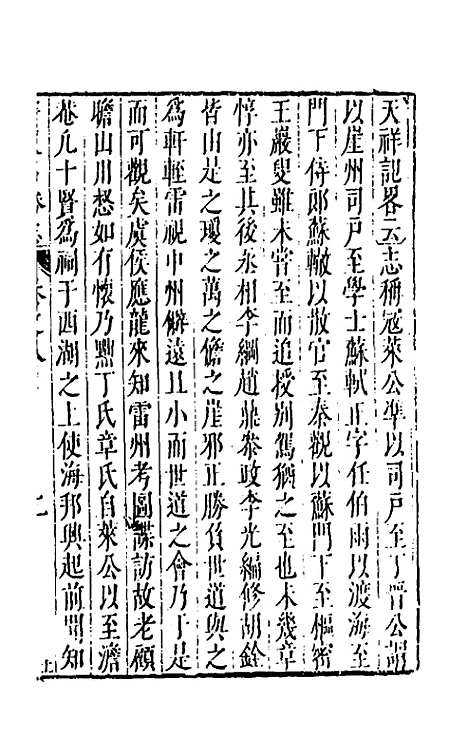 天祥記畧云志稱寇萊公準以司戶至丁晉公謂
以崖州司戶至學士蘇軾正字任伯雨以渡海至
門下侍郎蘇轍以散官至秦觀以蘇門下至樞密
王巖叟雖未嘗至而追授別駕猶之至也未幾章
惇亦至其後丞相李綱趙鼎參政李光編修胡銓
皆由是之瓊之萬之儋之崖邪正勝負世道與之
爲軒輊雷視中州僻遠且小而世道之會乃于是
而可觀矣虞侯應龍來知雷州考圖諜訪故老顧
瞻山川愁如有懷乃黜丁氏章氏自萊公以至澹
菴凡十賢爲祠于西湖之上使海邦興起前聞知